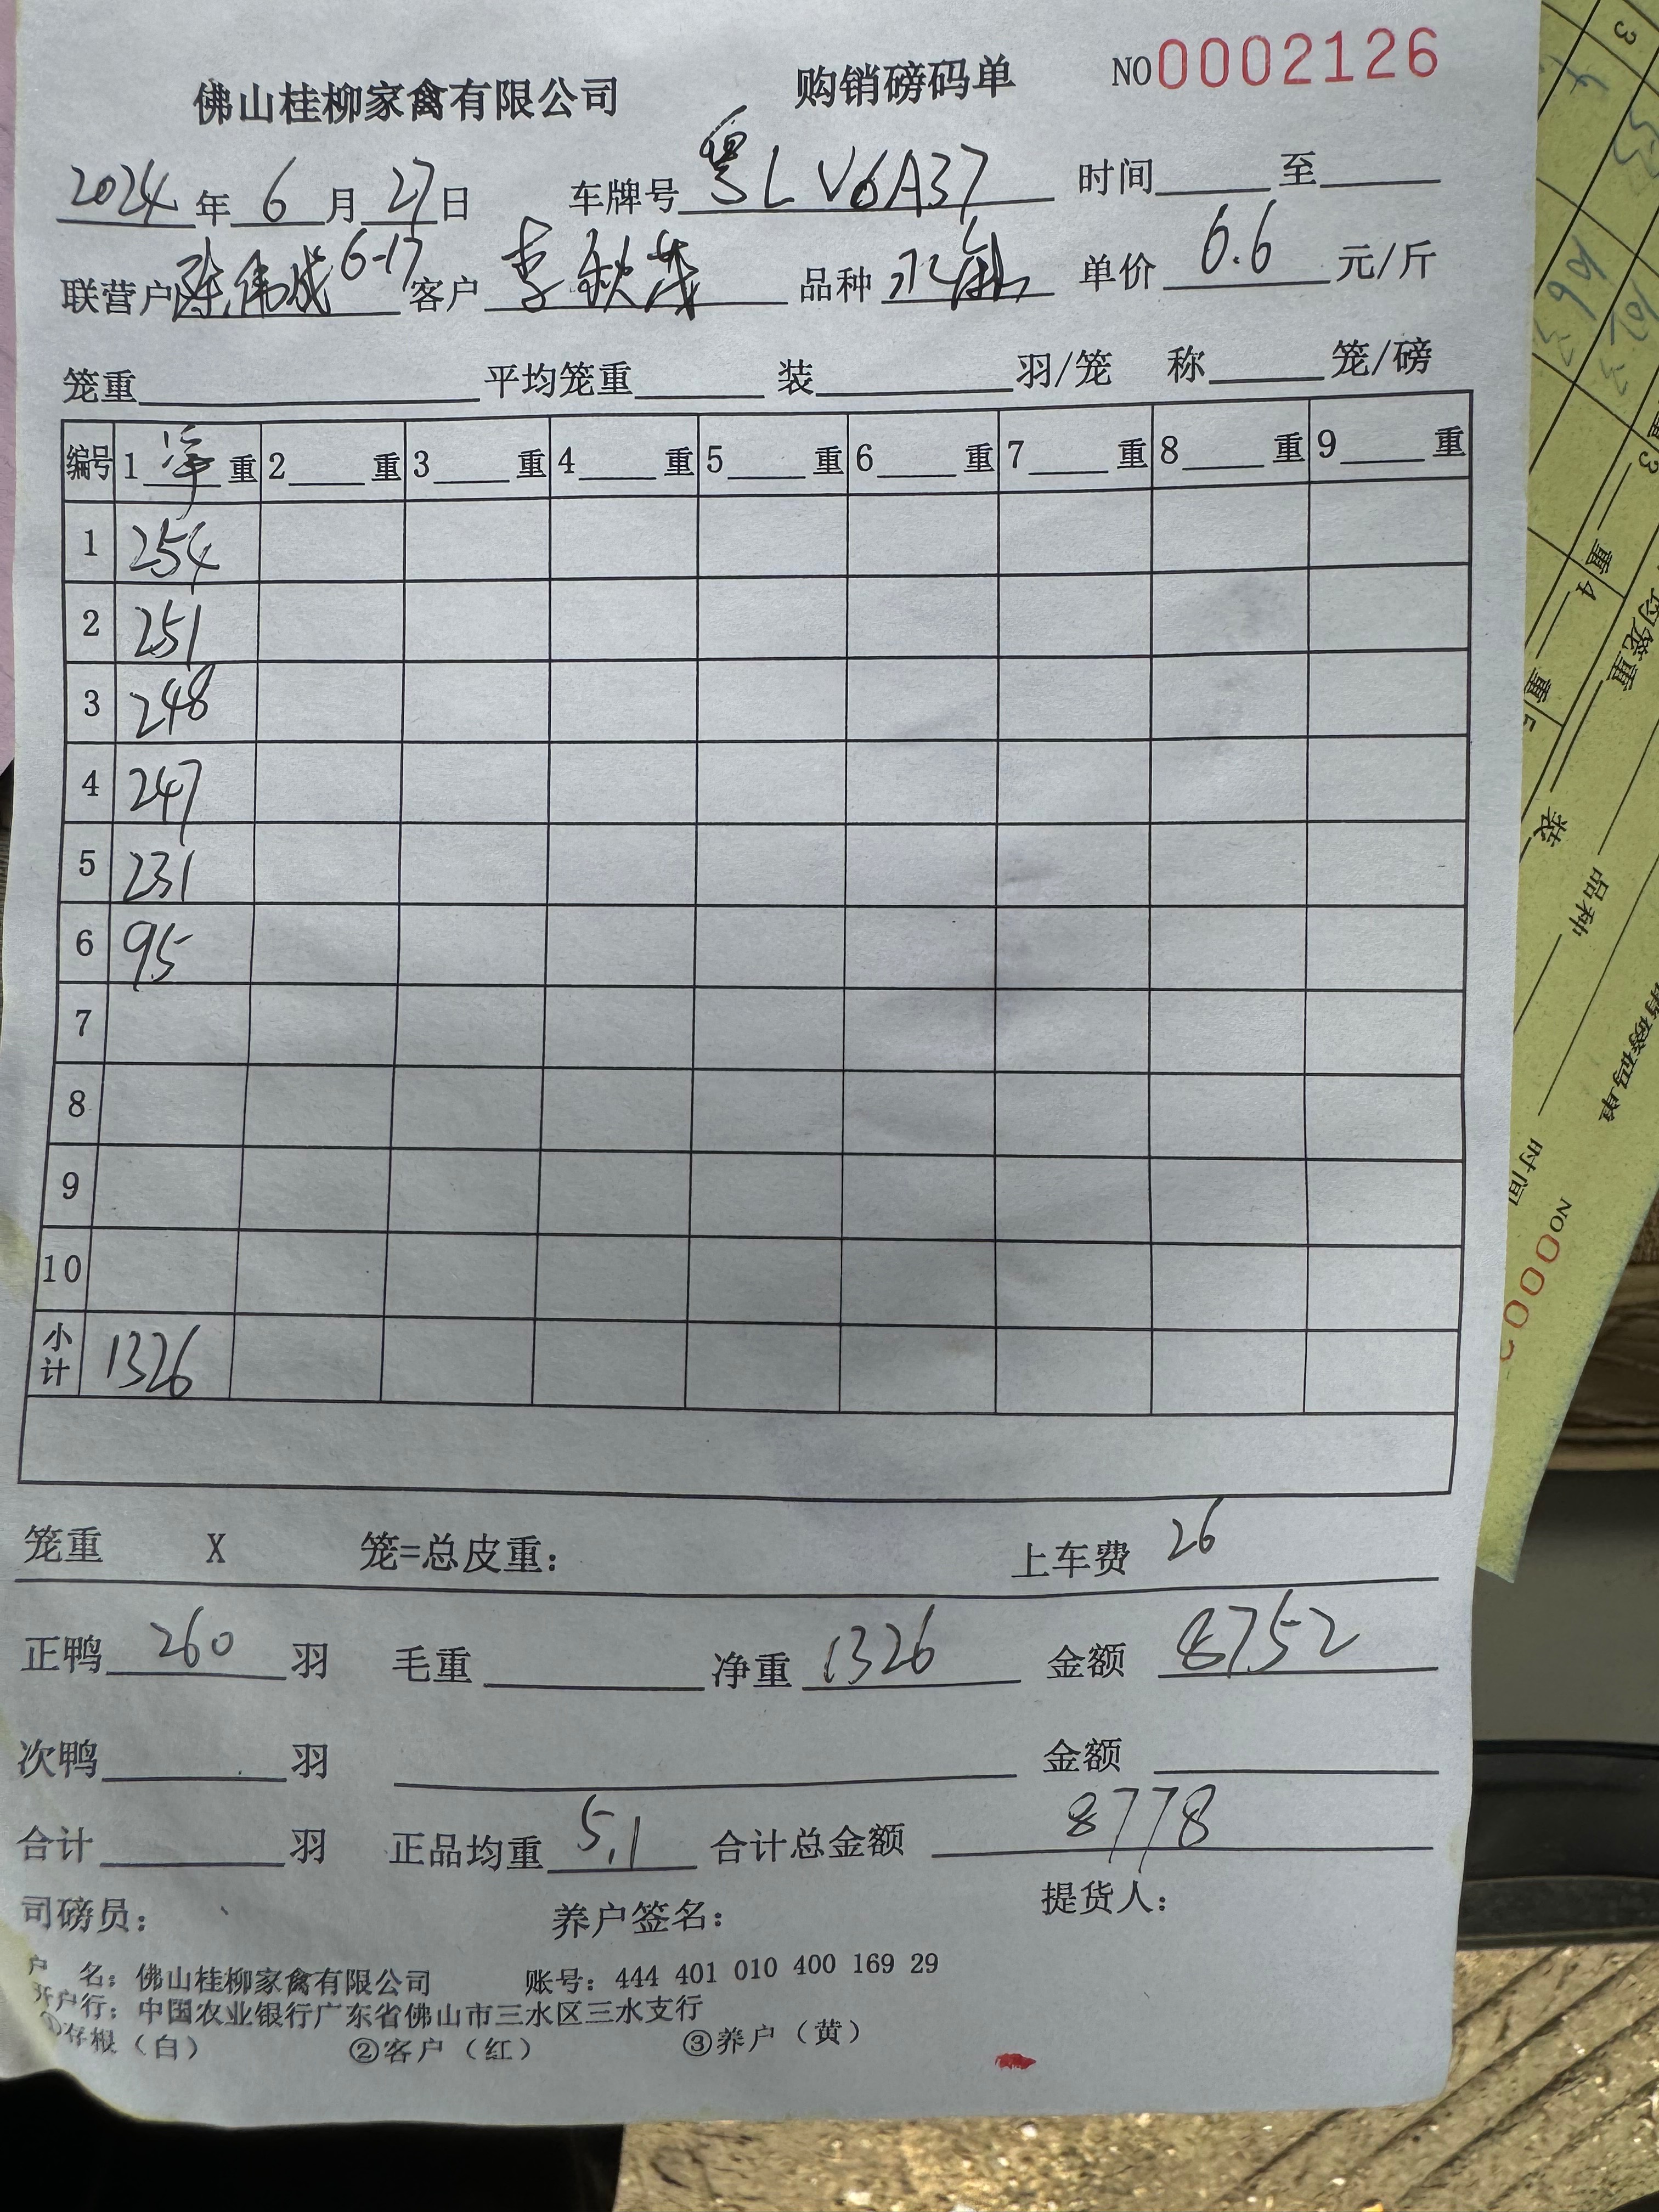 佛山桂柳家禽有限公司 购销磅码单 NO0002126
2024年6月27日 车牌号粤LV6A37 时间 至
联营户陈伟成6-17客户李秋茂 品种水鸭 单价6.6元/斤
笼重 平均笼重 装 羽/笼 称 笼/磅
编号 1净重 2 重 3 重 4 重 5 重 6 重 7 重 8 重 9 重
1 254
2 251
3 248
4 247
5 231
6 95
7
8
9
10
小计 1326
笼重 X 笼=总皮重: 上车费 26
正鸭 260 羽 毛重 净重 1326 金额 8752
次鸭 羽 金额
合计 羽 正品均重 5.1 合计总金额 8778
司磅员: 养户签名: 提货人:
户 名: 佛山桂柳家禽有限公司 账号: 444 401 010 400 169 29
开户行: 中国农业银行广东省佛山市三水区三水支行
①存根(白) ②客户(红) ③养户(黄)
3
重4
重5
均笼重
装
品种
销磅码单
时间
NO000